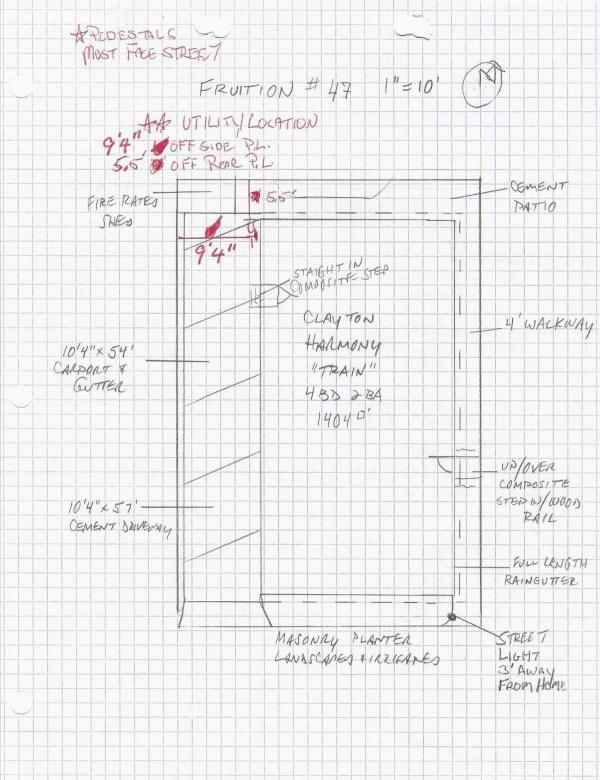 ☆ PEDESTALS
MUST FACE STREET
FRUITION # 47 1" = 10'
N
☆☆ UTILITY/LOCATION
9'4" OFF SIDE P.L.
5.5' OFF REAR P.L.
FIRE RATES
SHED
5.5'
CEMENT
PATIO
9'4"
STAIGHT IN
COMPOSITE STEP
CLAYTON
HARMONY
"TRAIN"
4 BD 2 BA
1404 □'
4' WALKWAY
10'4" x 54'
CARPORT &
GUTTER
UP/OVER
COMPOSITE
STEP W/WOOD
RAIL
10'4" x 57'
CEMENT DRIVEWAY
FULL LENGTH
RAINGUTTER
MASONRY PLANTER
STREET
LIGHT
3' AWAY
FROM HOME